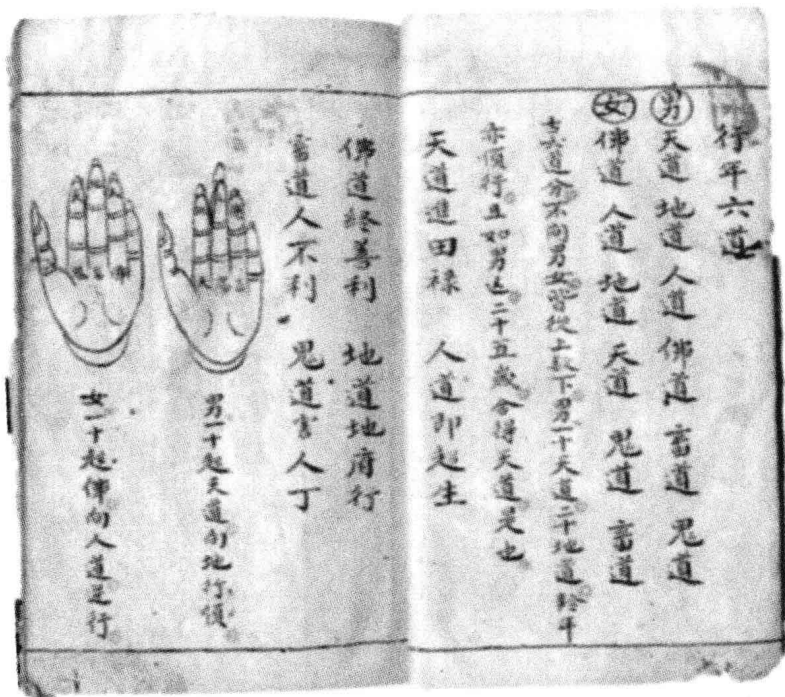 行年六道
男 天道 地道 人道 佛道 畜道 鬼道
女 佛道 人道 地道 天道 鬼道 畜道
六道分不问男女皆從上数下男一十天道二十地道零年
亦順行且如男廷二十五歲合得天道是也
天道進田禄 人道即起生
佛道終善利 地道地府行
畜道人不利 鬼道害人丁
男一十起天道向地行順
女一十起佛向人道逆行